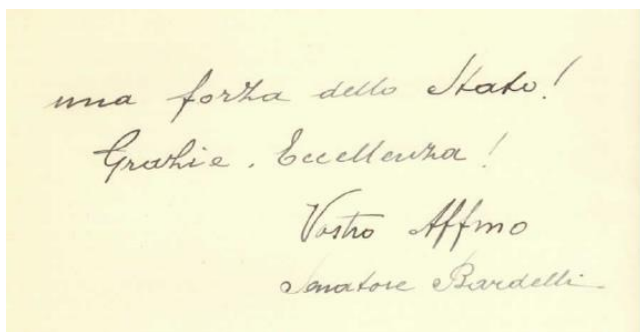 una forza dello Stato!
Grazie, Eccellenza!
Vostro Affmo
Senatore Bardelli